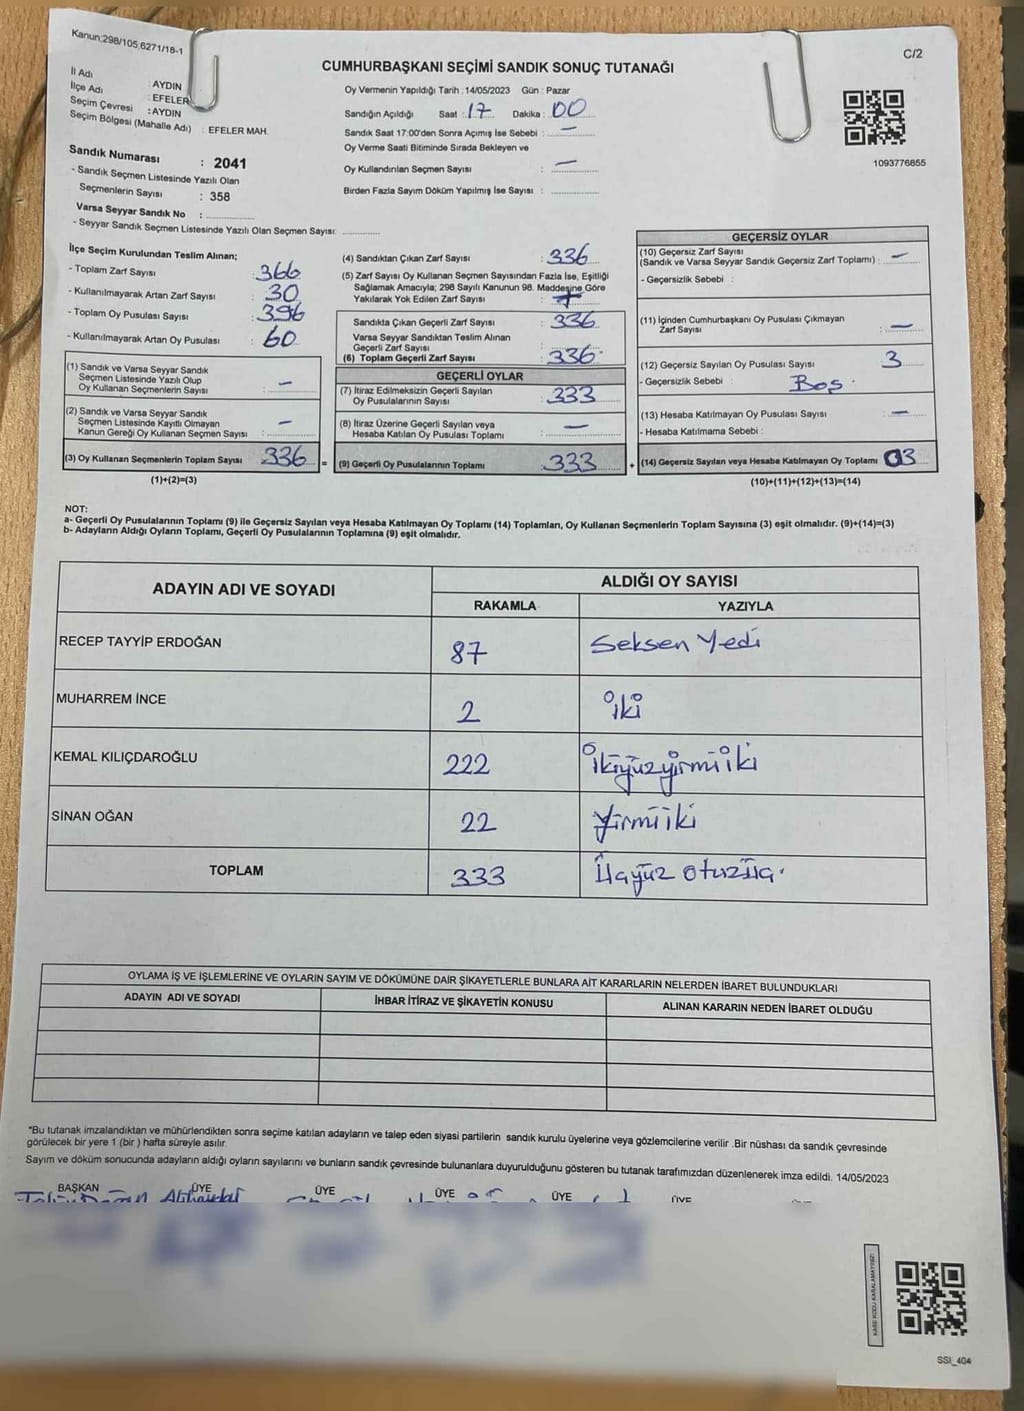 Kanun;298/105,6271/18-1
C/2
CUMHURBAŞKANI SEÇİMİ SANDIK SONUÇ TUTANAĞI
İl Adı : AYDIN
İlçe Adı : EFELER
Seçim Çevresi : AYDIN
Seçim Bölgesi (Mahalle Adı) : EFELER MAH.
Sandık Numarası : 2041
- Sandık Seçmen Listesinde Yazılı Olan
Seçmenlerin Sayısı : 358
Varsa Seyyar Sandık No :
- Seyyar Sandık Seçmen Listesinde Yazılı Olan Seçmen Sayısı:
Oy Vermenin Yapıldığı Tarih : 14/05/2023 Gün : Pazar
Sandığın Açıldığı Saat : 17 Dakika : 00
Sandık Saat 17:00'den Sonra Açımış İse Sebebi : —
Oy Verme Saati Bitiminde Sırada Bekleyen ve
Oy Kullandırılan Seçmen Sayısı : —
Birden Fazla Sayım Döküm Yapılmış İse Sayısı :
1093776855
İlçe Seçim Kurulundan Teslim Alınan;
- Toplam Zarf Sayısı : 366
- Kullanılmayarak Artan Zarf Sayısı : 30
- Toplam Oy Pusulası Sayısı : 396
- Kullanılmayarak Artan Oy Pusulası : 60
(1) Sandık ve Varsa Seyyar Sandık
Seçmen Listesinde Yazılı Olup
Oy Kullanan Seçmenlerin Sayısı : —
(2) Sandık ve Varsa Seyyar Sandık
Seçmen Listesinde Kayıtlı Olmayan
Kanun Gereği Oy Kullanan Seçmen Sayısı : —
(3) Oy Kullanan Seçmenlerin Toplam Sayısı 336 =
(1)+(2)=(3)
(4) Sandıktan Çıkan Zarf Sayısı : 336
(5) Zarf Sayısı Oy Kullanan Seçmen Sayısından Fazla İse, Eşitliği
Sağlamak Amacıyla; 298 Sayılı Kanunun 98. Maddesine Göre
Yakılarak Yok Edilen Zarf Sayısı :
Sandıkta Çıkan Geçerli Zarf Sayısı : 336
Varsa Seyyar Sandıktan Teslim Alınan
Geçerli Zarf Sayısı :
(6) Toplam Geçerli Zarf Sayısı : 336
GEÇERLİ OYLAR
(7) İtiraz Edilmeksizin Geçerli Sayılan
Oy Pusulalarının Sayısı : 333
(8) İtiraz Üzerine Geçerli Sayılan veya
Hesaba Katılan Oy Pusulası Toplamı : —
(9) Geçerli Oy Pusulalarının Toplamı 333 +
GEÇERSİZ OYLAR
(10) Geçersiz Zarf Sayısı
(Sandık ve Varsa Seyyar Sandık Geçersiz Zarf Toplamı) : —
- Geçersizlik Sebebi :
(11) İçinden Cumhurbaşkanı Oy Pusulası Çıkmayan
Zarf Sayısı : —
(12) Geçersiz Sayılan Oy Pusulası Sayısı : 3
- Geçersizlik Sebebi : Boş
(13) Hesaba Katılmayan Oy Pusulası Sayısı : —
- Hesaba Katılmama Sebebi :
(14) Geçersiz Sayılan veya Hesaba Katılmayan Oy Toplamı 03
(10)+(11)+(12)+(13)=(14)
NOT:
a- Geçerli Oy Pusulalarının Toplamı (9) ile Geçersiz Sayılan veya Hesaba Katılmayan Oy Toplamı (14) Toplamları, Oy Kullanan Seçmenlerin Toplam Sayısına (3) eşit olmalıdır. (9)+(14)=(3)
b- Adayların Aldığı Oyların Toplamı, Geçerli Oy Pusulalarının Toplamına (9) eşit olmalıdır.
ADAYIN ADI VE SOYADI
ALDIĞI OY SAYISI
RAKAMLA YAZIYLA
RECEP TAYYİP ERDOĞAN 87 Seksen Yedi
MUHARREM İNCE 2 iki
KEMAL KILIÇDAROĞLU 222 İkiyüzyirmiiki
SİNAN OĞAN 22 Yirmiiki
TOPLAM 333 Üçyüz otuzüç.
OYLAMA İŞ VE İŞLEMLERİNE VE OYLARIN SAYIM VE DÖKÜMÜNE DAİR ŞİKAYETLERLE BUNLARA AİT KARARLARIN NELERDEN İBARET BULUNDUKLARI
ADAYIN ADI VE SOYADI İHBAR İTİRAZ VE ŞİKAYETİN KONUSU ALINAN KARARIN NEDEN İBARET OLDUĞU
*Bu tutanak imzalandıktan ve mühürlendikten sonra seçime katılan adayların ve talep eden siyasi partilerin sandık kurulu üyelerine veya gözlemcilerine verilir .Bir nüshası da sandık çevresinde
görülecek bir yere 1 (bir ) hafta süreyle asılır.
Sayım ve döküm sonucunda adayların aldığı oyların sayılarını ve bunların sandık çevresinde bulunanlara duyurulduğunu gösteren bu tutanak tarafımızdan düzenlenerek imza edildi. 14/05/2023
BAŞKAN ÜYE ÜYE ÜYE ÜYE ÜYE
KARE KODU KARALAMAYINIZ!
SSI_404